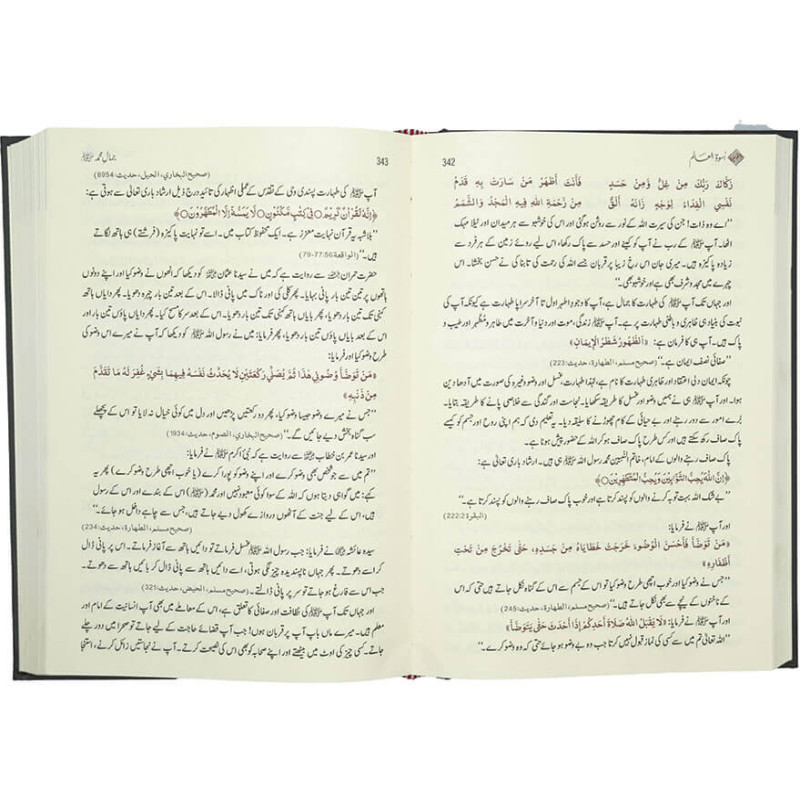 342
اسوۂ العالم
زَكَّاكَ رَبُّكَ مِنْ غِلٍّ وَّمِنْ حَسَدٍ فَأَنْتَ أَطْهَرُ مَنْ سَارَتْ بِهِ قَدَمُ
نَفْسِي الْفِدَاءُ لِوَجْهٍ زَانَهُ أَلَقٌ مِنْ رَّحْمَةِ اللّٰهِ فِيهِ الْمَجْدُ وَالشَّمَمُ
’’اے وہ ذات! جن کی سیرت اللہ کے نور سے روشن ہو گئی اور اس کی خوشبو سے ہر میدان اور ٹیلا مہک
اٹھا۔ آپ ﷺ کے رب نے آپ کو کینے اور حسد سے پاک رکھا، اس لیے روئے زمین کے ہر فرد سے
زیادہ پاکیزہ ہیں۔ میری جان اس رخ زیبا پر قربان جسے اللہ کی رحمت کی تابنا کی نے حسن بخشا۔ اس
چہرے میں مجد و شرف بھی ہے اور خوشبو بھی۔‘‘
اور جہاں تک آپ ﷺ کی طہارت کا جمال ہے، آپ کا وجود اطہر اول تا آخر سراپا طہارت ہے کیونکہ آپ کی
نبوت کی بنیاد ہی ظاہری و باطنی طہارت پر ہے۔ آپ ﷺ زندگی، موت اور دنیا و آخرت میں طاہر و مطہر اور طیب و
پاک ہیں۔ آپ ہی کا فرمان ہے: «اَلطُّهُورُ شَطْرُ الْإِيمَانِ»
’’صفائی نصف ایمان ہے۔‘‘ (صحیح مسلم، الطهارة، حدیث:223)
چونکہ ایمان دلی اعتقاد اور ظاہری طہارت کا نام ہے، لہٰذا طہارت، غسل اور وضو وغیرہ کی صورت میں آدھا دین
ہوا۔ اور آپ ﷺ ہی نے ہمیں وضو اور غسل کا طریقہ سکھایا۔ نجاست اور گندگی سے خلاصی پانے کا طریقہ بتایا۔
برے امور سے دور رہنے اور بے حیائی کے کام چھوڑنے کا سلیقہ دیا۔ یہ تعلیم دی کہ ہم اپنی روح اور جسم کو کیسے
پاک صاف رکھ سکتے ہیں اور کس طرح پاک صاف ہو کر اللہ کے حضور پیش ہونا ہے۔
پاک صاف رہنے والوں کے امام، خاتم النبیین محمد رسول اللہ ﷺ ہی ہیں۔ ارشاد باری تعالیٰ ہے:
﴿اِنَّ اللّٰهَ يُحِبُّ التَّوَّابِيْنَ وَيُحِبُّ الْمُتَطَهِّرِيْنَ○﴾
’’بے شک اللہ بہت توبہ کرنے والوں کو پسند کرتا ہے اور خوب پاک صاف رہنے والوں کو پسند کرتا ہے۔‘‘
(البقرة 2:222)
اور آپ ﷺ نے فرمایا:
«مَنْ تَوَضَّأَ فَأَحْسَنَ الْوُضُوءَ، خَرَجَتْ خَطَايَاهُ مِنْ جَسَدِهِ، حَتّٰى تَخْرُجَ مِنْ تَحْتِ
أَظْفَارِهِ»
’’جس نے وضو کیا اور خوب اچھی طرح وضو کیا تو اس کے جسم سے اس کے گناہ نکل جاتے ہیں حتی کہ اس
کے ناخنوں کے نیچے سے بھی نکل جاتے ہیں۔‘‘ (صحیح مسلم، الطهارة، حدیث:245)
اور آپ ﷺ نے فرمایا: «لَا يَقْبَلُ اللّٰهُ صَلَاةَ أَحَدِكُمْ إِذَا أَحْدَثَ حَتّٰى يَتَوَضَّأَ»
’’اللہ تعالیٰ تم میں سے کسی کی نماز قبول نہیں کرتا جب وہ بے وضو ہو جائے حتی کہ وہ وضو کرے۔‘‘
343
جمال محمد ﷺ
(صحیح البخاري، الحیل، حدیث:6954)
آپ ﷺ کی طہارت پسندی وحی کے تقدس کے عملی اظہار کی تائید درج ذیل ارشاد باری تعالیٰ سے ہوتی ہے:
﴿اِنَّهٗ لَقُرْاٰنٌ كَرِيْمٌ○ فِيْ كِتٰبٍ مَّكْنُوْنٍ○ لَّا يَمَسُّهٗٓ اِلَّا الْمُطَهَّرُوْنَ○﴾
’’بلاشبہ یہ قرآن نہایت معزز ہے۔ ایک محفوظ کتاب میں۔ اسے تو نہایت پاکیزہ (فرشتے) ہی ہاتھ لگاتے
ہیں۔‘‘ (الواقعة 56:77-79)
حضرت حمران سے روایت ہے کہ میں نے سیدنا عثمان کو دیکھا کہ انھوں نے وضو کیا اور اپنے دونوں
ہاتھوں پر تین تین بار پانی بہایا۔ پھر کلی کی اور ناک میں پانی ڈالا۔ اس کے بعد تین بار چہرہ دھویا۔ پھر دایاں ہاتھ
کہنی تک تین بار دھویا، پھر بایاں ہاتھ کہنی تک تین بار دھویا۔ اس کے بعد سر کا مسح کیا۔ پھر دایاں پاؤں تین بار اور
اس کے بعد بایاں پاؤں تین بار دھویا، پھر فرمایا: میں نے رسول اللہ ﷺ کو دیکھا کہ آپ نے میرے اس وضو کی
طرح وضو کیا اور فرمایا:
«مَنْ تَوَضَّأَ وُضُوئِي هٰذَا ثُمَّ يُصَلِّي رَكْعَتَيْنِ لَا يُحَدِّثُ نَفْسَهُ فِيهِمَا بِشَيْءٍ، غُفِرَ لَهُ مَا تَقَدَّمَ
مِنْ ذَنْبِهِ»
’’جس نے میرے وضو جیسا وضو کیا، پھر دو رکعتیں پڑھیں اور دل میں کوئی خیال نہ لایا تو اس کے پچھلے
سب گناہ بخش دیے جائیں گے۔‘‘ (صحیح البخاري، الصوم، حدیث:1934)
اور سیدنا عمر بن خطاب سے روایت ہے کہ نبی اکرم ﷺ نے فرمایا:
’’تم میں سے جو شخص بھی وضو کرے اور اپنے وضو کو پورا کرے (یا خوب اچھی طرح وضو کرے) پھر یہ
کہے: میں گواہی دیتا ہوں کہ اللہ کے سوا کوئی معبود نہیں اور محمد (ﷺ) اس کے بندے اور اس کے رسول
ہیں، اس کے لیے جنت کے آٹھوں دروازے کھول دیے جاتے ہیں، جس سے چاہے داخل ہو جائے۔‘‘
(صحیح مسلم، الطهارة، حدیث:234)
سیدہ عائشہ نے فرمایا: جب رسول اللہ ﷺ غسل فرماتے تو دائیں ہاتھ سے آغاز فرماتے۔ اس پر پانی ڈال
کر اسے دھوتے۔ پھر جہاں ناپسندیدہ چیز لگی ہوتی، اسے دائیں ہاتھ سے پانی ڈال کر بائیں ہاتھ سے دھوتے۔
جب اس سے فارغ ہو جاتے تو سر پر پانی ڈالتے۔ (صحیح مسلم، الحیض، حدیث:321)
اور جہاں تک آپ ﷺ کی نظافت اور صفائی کا تعلق ہے، اس کے معاملے میں بھی آپ انسانیت کے امام اور
معلم ہیں۔ میرے ماں باپ آپ پر قربان ہوں! جب آپ قضائے حاجت کے لیے جاتے تو صحرا میں دور چلے
جاتے۔ کسی چیز کی اوٹ میں بیٹھتے اور اپنے صحابہ کو بھی اس کی نصیحت کرتے۔ آپ نے نجاستیں زائل کرنے، استنجا